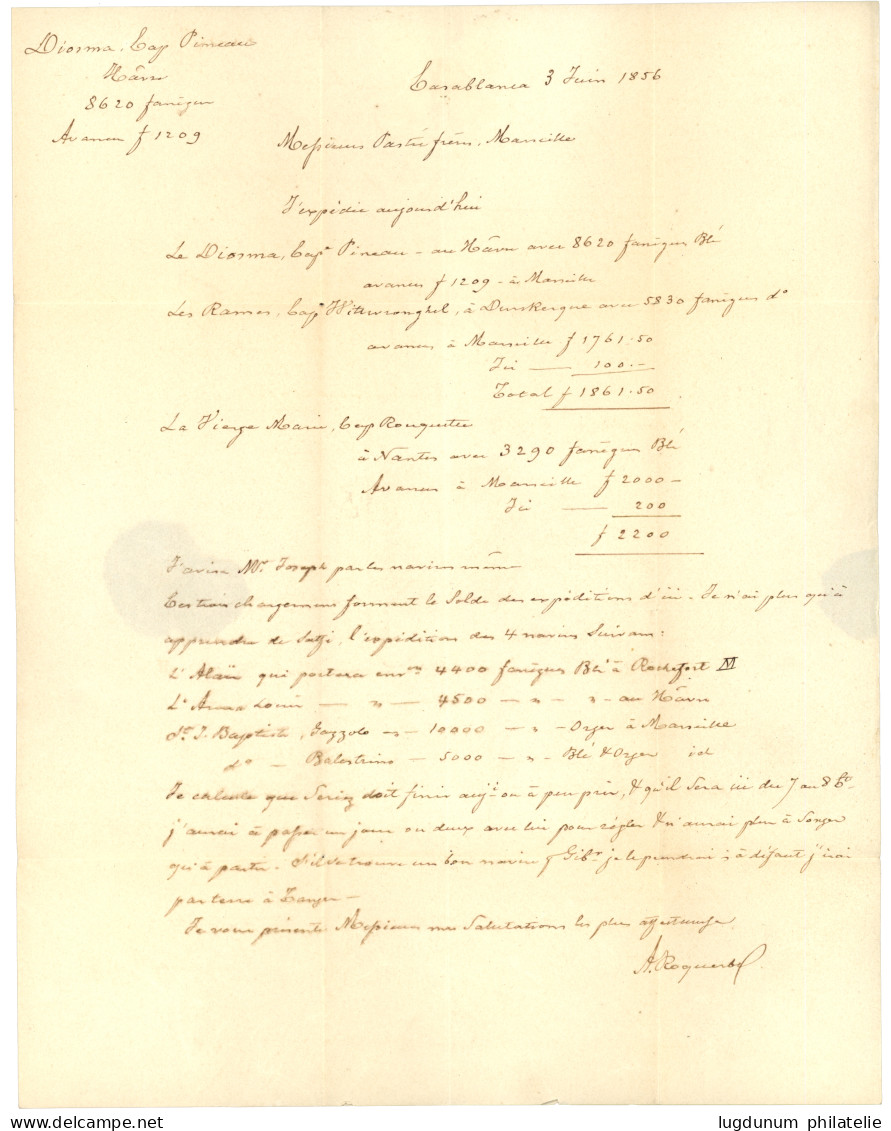 Diosma, Cap Pineau
Hâvre
8620 fanègues
Avances f 1209
Casablanca 3 Juin 1856
Messieurs Pastré frères, Marseille
J'expédie aujourd'hui
Le Diosma, Cap. Pineau - au Hâvre avec 8620 fanègues Blé
avances f 1209 - à Marseille
Les Rames, Cap. Wittevronghel, à Dunkerque avec 5830 fanègues do
avances à Marseille f 1761.50
Ici — 100.-
Total f 1861.50
La Vierge Marie, Cap Rouquette
à Nantes avec 3290 fanègues Blé
Avances à Marseille f 2000 -
Ici — 200
f 2200
J'avise Mr. Joseph par les navires même
Ces trois chargemens forment le Solde des expéditions d'ici - Je n'ai plus qu'à
apprendre de Saffi, l'expédition des 4 navires Suivans:
L' qui portera envon 4400 fanègues Blé à Rochefort M
L'Anna Louise — " — 4500 — " — " - au Hâvre
St. J. Baptiste, Gazzolo - " - 10000 — " - Orge à Marseille
do - Balestrino - 5000 — " - Blé & Orge id
Je calcule que doit finir aujt. ou à peu près, & qu'il Sera ici du 7 au 8 Ct.
j'aurai à passer un jour ou deux avec lui pour régler & n'aurai plus à Songer
qu'à partir. S'il se trouve un bon navire p Gibr. je le prendrai; à défaut j'irai
par terre à Tanger -
Je vous présente Messieurs mes Salutations les plus affectueuses
lugdunum philatelie